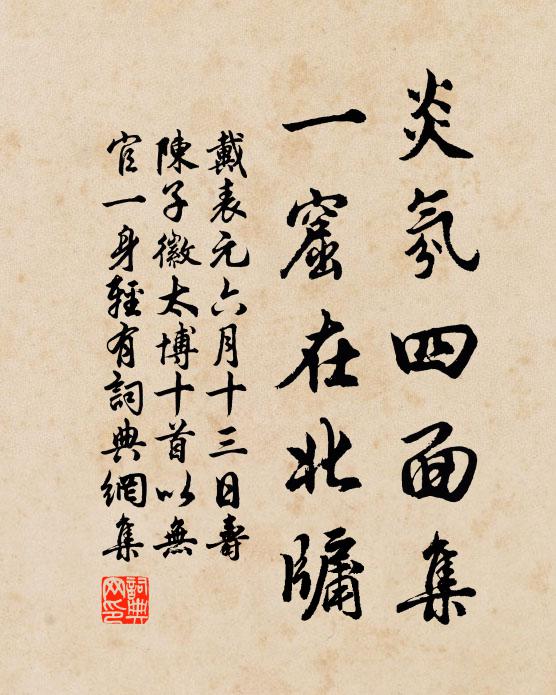 炎氛四面集
一窟在北牖
戴表元六月十三日壽
陳子徽太博十首以無
官一身輕有詞典網集
詞典網印